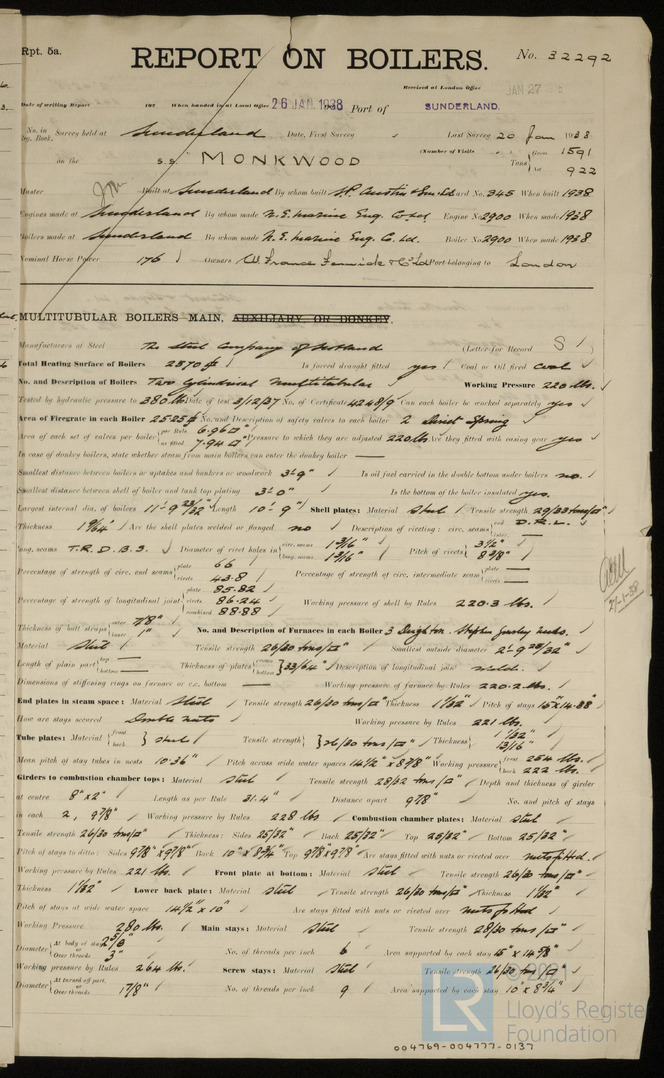 Rpt. 5a.
REPORT ON BOILERS.
No. 32292
Received at London Office JAN 27
Date of writing Report 192 When handed in at Local Office 26 JAN. 1938 Port of SUNDERLAND.
No. in Reg. Book. Survey held at Sunderland Date, First Survey Last Survey 20 Jan 1938
(Number of Visits
on the S.S. "MONKWOOD Tons Gross 1591 Net 922
Master Built at Sunderland By whom built S.P. Austin & Son Ld Yard No. 345 When built 1938
Engines made at Sunderland By whom made N.E. Marine Eng. Co Ld. Engine No. 2900 When made 1938
Boilers made at Sunderland By whom made N.E. Marine Eng. Co. Ld. Boiler No. 2900 When made 1938
Nominal Horse Power 176 Owners Wm France Fenwick & Co Ld Port belonging to London
MULTITUBULAR BOILERS MAIN, AUXILIARY OR DONKEY.
Manufacturers of Steel The Steel Company of Scotland (Letter for Record S)
Total Heating Surface of Boilers 2870 Is forced draught fitted yes Coal or Oil fired Coal
No. and Description of Boilers Two Cylindrical Multitubular Working Pressure 220 lbs.
Tested by hydraulic pressure to 380 lbs Date of test 3/12/37 No. of Certificate 4248/9 Can each boiler be worked separately yes
Area of Firegrate in each Boiler 25.25 No. and Description of safety valves to each boiler 2 Direct Spring
Area of each set of valves per boiler per Rule 6.96 as fitted 7.94 Pressure to which they are adjusted 220 lbs Are they fitted with easing gear yes
In case of donkey boilers, state whether steam from main boilers can enter the donkey boiler —
Smallest distance between boilers or uptakes and bunkers or woodwork 3'-9" Is oil fuel carried in the double bottom under boilers no.
Smallest distance between shell of boiler and tank top plating 3'-0" Is the bottom of the boiler insulated yes.
Largest internal dia. of boilers 11'-9 23/32" Length 10'-9" Shell plates: Material Steel Tensile strength 29/33 tons/□"
Thickness 1 9/64" Are the shell plates welded or flanged no Description of riveting: circ. seams end D.R.L. inter. —
long. seams T.R.D.B.S. Diameter of rivet holes in circ. seams 1 3/16" long. seams 1 3/16" Pitch of rivets 3 1/2" 8 3/8"
Percentage of strength of circ. end seams plate 66 rivets 43.8 Percentage of strength of circ. intermediate seam plate — rivets —
Percentage of strength of longitudinal joint plate 85.82 rivets 86.24 combined 88.88 Working pressure of shell by Rules 220.3 lbs.
Thickness of butt straps outer 7/8" inner 1" No. and Description of Furnaces in each Boiler 3 Deighton. Stephen Gourlay necks.
Material Steel Tensile strength 26/30 tons/□" Smallest outside diameter 2'-9 29/32"
Length of plain part top — bottom — Thickness of plates crown bottom 33/64" Description of longitudinal joint weld.
Dimensions of stiffening rings on furnace or c.c. bottom — Working pressure of furnace by Rules 220.2 lbs.
End plates in steam space: Material Steel Tensile strength 26/30 tons/□" Thickness 1 1/32" Pitch of stays 15" x 14.88"
How are stays secured Double nuts Working pressure by Rules 221 lbs.
Tube plates: Material front back Steel Tensile strength 26/30 tons/□" Thickness 1 1/32" 13/16"
Mean pitch of stay tubes in nests 10.36" Pitch across wide water spaces 14 1/2" x 8 7/8" Working pressure front 254 lbs. back 222 lbs.
Girders to combustion chamber tops: Material Steel Tensile strength 28/32 tons/□" Depth and thickness of girder
at centre 8" x 2" Length as per Rule 31.4" Distance apart 9 7/8" No. and pitch of stays
in each 2, 9 7/8" Working pressure by Rules 228 lbs Combustion chamber plates: Material Steel
Tensile strength 26/30 tons/□" Thickness: Sides 25/32" Back 25/32" Top 25/32" Bottom 25/32"
Pitch of stays to ditto: Sides 9 7/8" x 9 7/8" Back 10" x 8 3/4" Top 9 7/8" x 9 7/8" Are stays fitted with nuts or riveted over nuts fitted.
Working pressure by Rules 221 lbs. Front plate at bottom: Material Steel Tensile strength 26/30 tons/□"
Thickness 1 1/32" Lower back plate: Material Steel Tensile strength 26/30 tons/□" Thickness 1 1/32"
Pitch of stays at wide water space 14 1/2" x 10" Are stays fitted with nuts or riveted over nuts fitted
Working Pressure 280 lbs. Main stays: Material Steel Tensile strength 28/30 tons/□"
Diameter At body of stay 2 5/8" or Over threads 3" No. of threads per inch 6 Area supported by each stay 15" x 14 5/8"
Working pressure by Rules 264 lbs. Screw stays: Material Steel Tensile strength 26/30 tons/□"
Diameter At turned off part, or Over threads 1 7/8" No. of threads per inch 9 Area supported by each stay 10" x 8 3/4"
27-1-38
© 2021
LR Lloyd's Register Foundation
004769-004777-0137